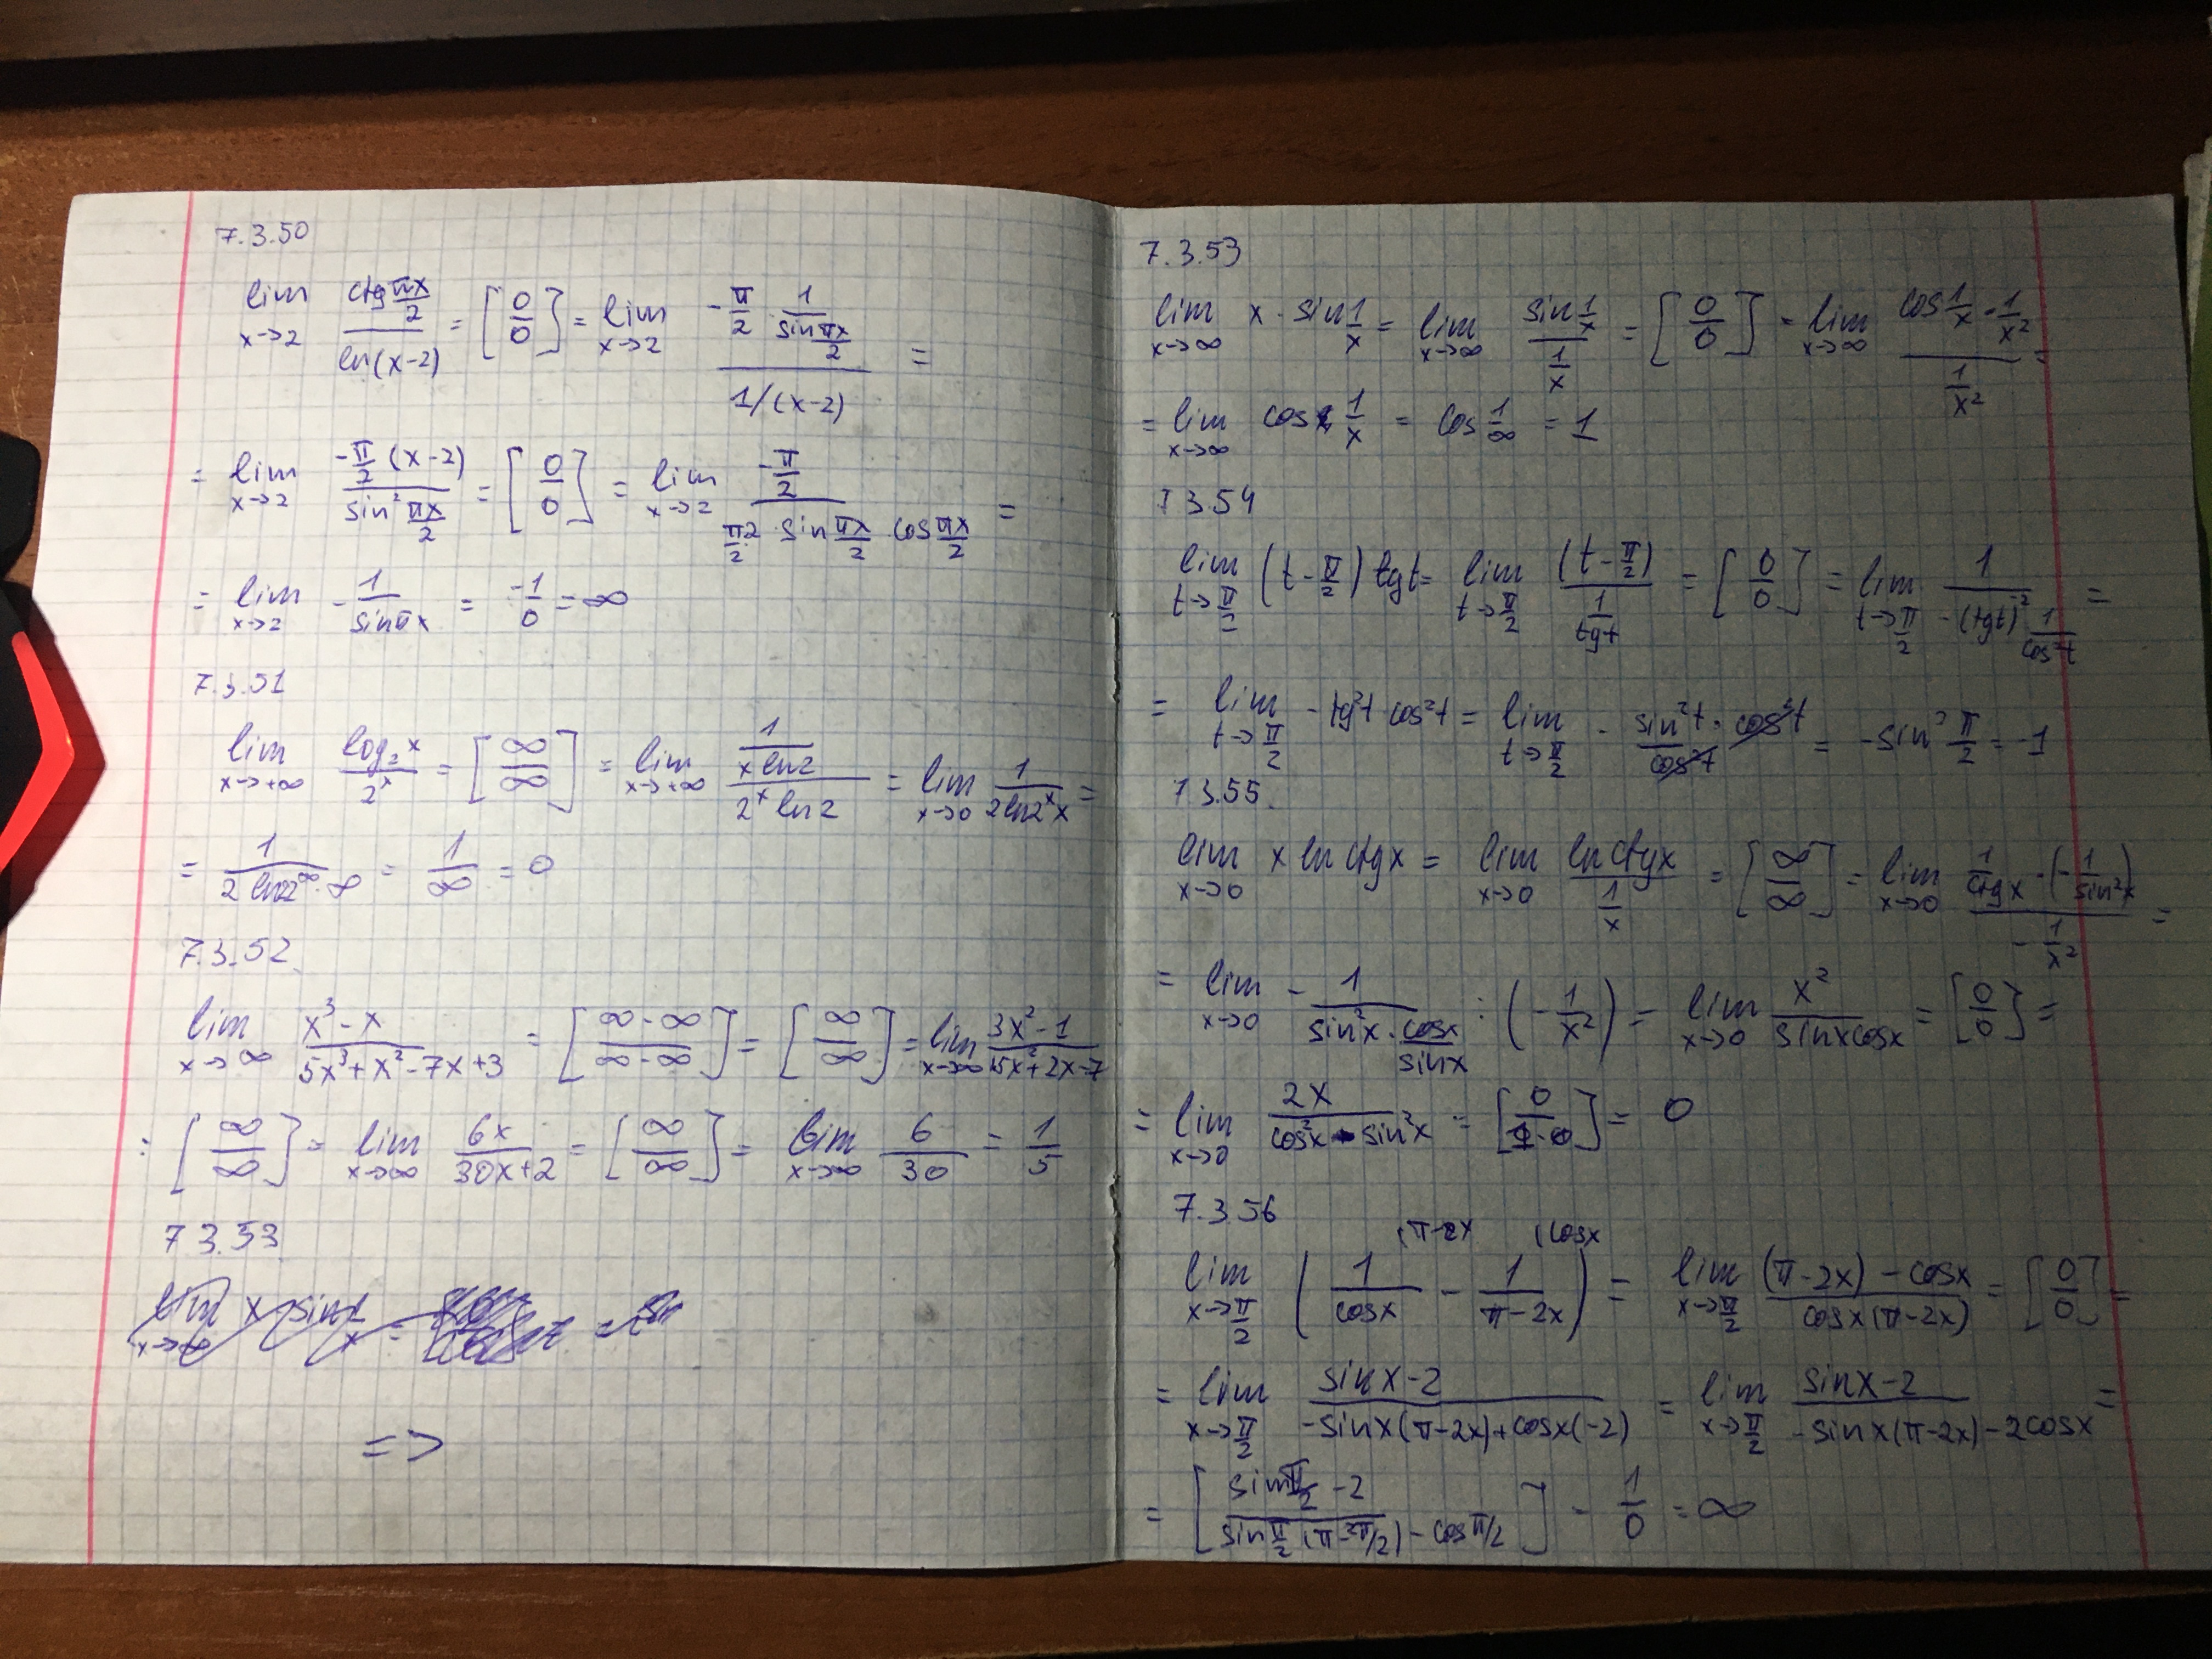 7.3.50
lim x→2 ctg πx/2 / ln(x-2) = [0/0] = lim x→2 -π/2 · 1/sin πx/2 / 1/(x-2) =
= lim x→2 -π/2 (x-2) / sin² πx/2 = [0/0] = lim x→2 -π/2 / π/2 · 2 · sin πx/2 cos πx/2 =
= lim x→2 - 1/sin πx = -1/0 = ∞
7.3.51
lim x→+∞ log₂x / 2ˣ = [∞/∞] = lim x→+∞ 1/(x ln2) / 2ˣ ln2 = lim x→0 1 / 2 ln2ˣ x =
= 1 / 2 ln22^∞ · ∞ = 1/∞ = 0
7.3.52
lim x→∞ x³-x / 5x³+x²-7x+3 = [∞-∞ / ∞-∞] = [∞/∞] = lim x→∞ 3x²-1 / 15x²+2x-7
= [∞/∞] = lim x→∞ 6x / 30x+2 = [∞/∞] = lim x→∞ 6/30 = 1/5
7 3.53
=>
7.3.53
lim x→∞ x · sin 1/x = lim x→∞ sin 1/x / 1/x = [0/0] = lim x→∞ cos 1/x · 1/x² / 1/x² =
= lim x→∞ cos 1/x = cos 1/∞ = 1
7 3.54
lim t→π/2 (t-π/2) tgt = lim t→π/2 (t-π/2) / 1/tgt = [0/0] = lim t→π/2 1 / -(tgt)⁻² 1/cos²t =
= lim t→π/2 - tg²t cos²t = lim t→π/2 - sin²t · cos²t / cos²t = -sin² π/2 = -1
7 3.55.
lim x→0 x ln ctgx = lim x→0 ln ctgx / 1/x = [∞/∞] = lim x→0 1/ctgx · (-1/sin²x) / -1/x² =
= lim x→0 - 1 / sin²x · cosx/sinx : (-1/x²) = lim x→0 x² / sinxcosx = [0/0] =
= lim x→0 2x / cos²x - sin²x = [0/1-0] = 0
7.3.56
(π-2x (cosx
lim x→π/2 (1/cosx - 1/π-2x) = lim x→π/2 (π-2x) - cosx / cosx(π-2x) = [0/0] =
= lim x→π/2 sinx-2 / -sinx(π-2x)+cosx(-2) = lim x→π/2 sinx-2 / -sinx(π-2x)-2cosx =
= [sin π/2 -2 / sin π/2 (π-2π/2)-cos π/2] = 1/0 = ∞